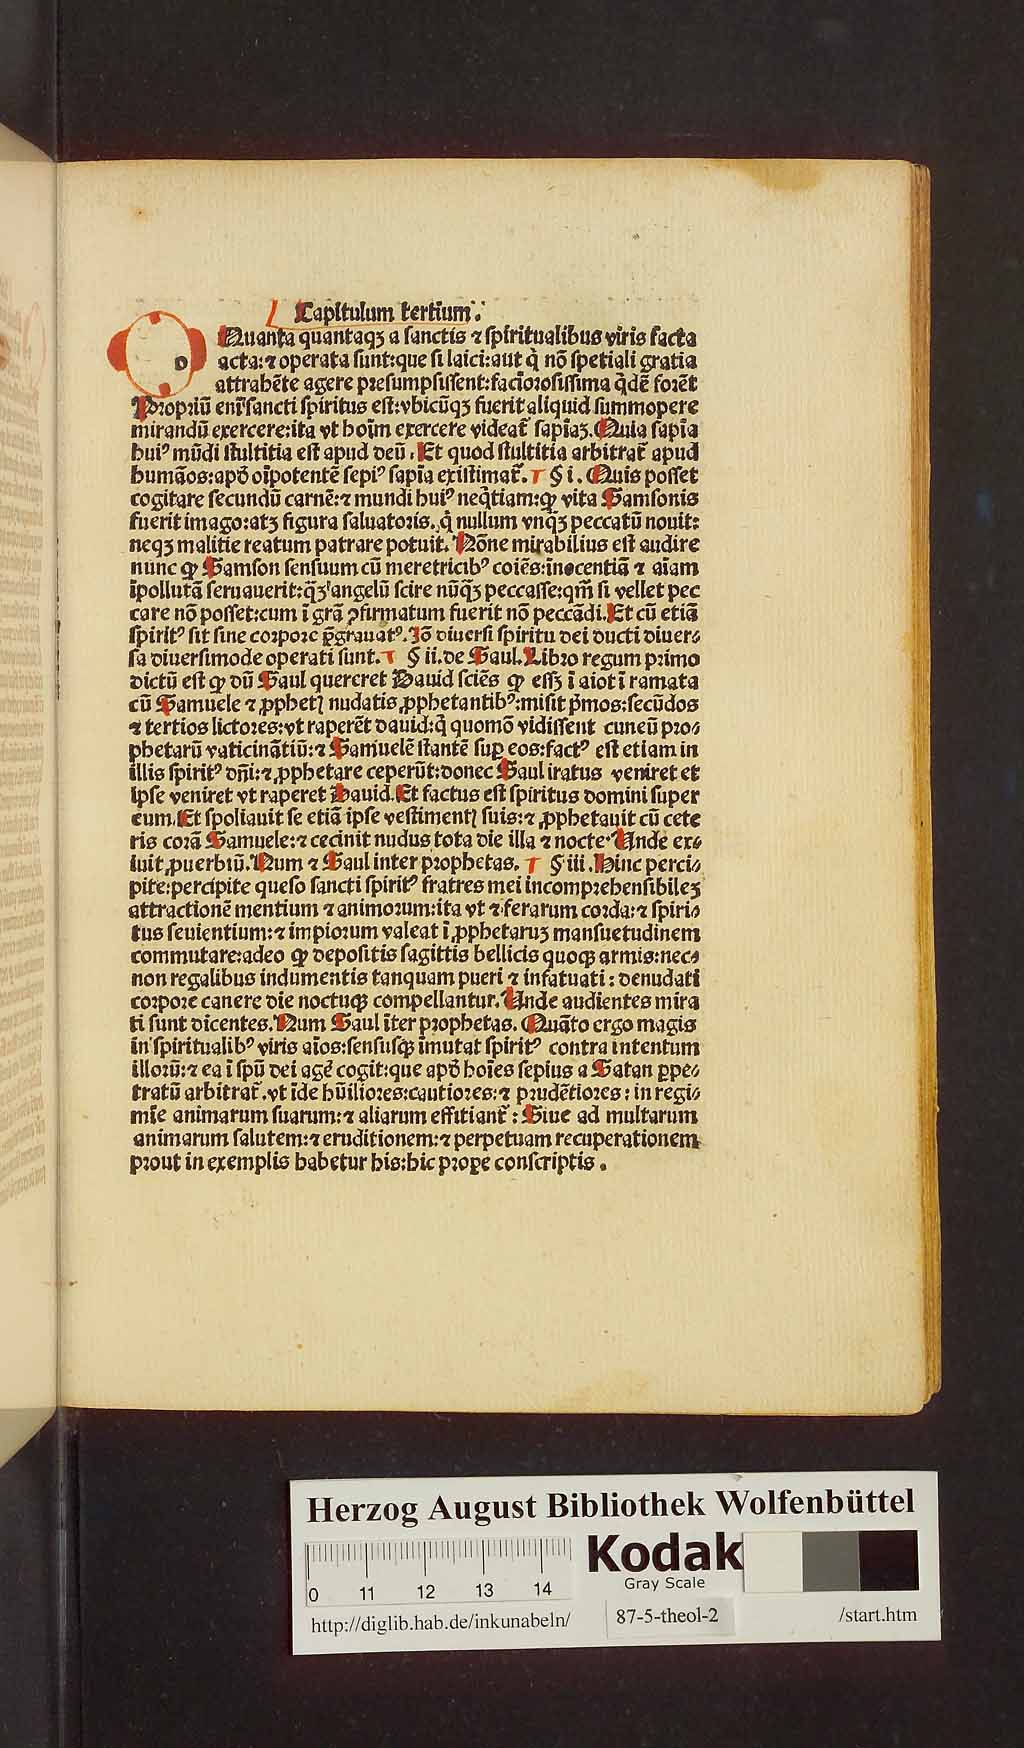 Capitulum tertium.
o Quanta quantaqȝ a sanctis ⁊ spiritualibus viris facta
acta:⁊ operata sunt:que si laici:aut q̇ nō spetiali gratia
attrahēte agere presumpsissent:facīorosissima q̇dē forēt
Propriū enī sancti spiritus est:vbicūqȝ fuerit aliquid summopere
mirandū exercere:ita vt hoīm exercere videat̄ sapīaȝ. Quia sapīa
huiꝰ mūdi stultitia est apud deū. Et quod stultitia arbitrat̄ apud
humāos:apđ oīpotentē sepiꝰ sapīa existimat̄. § i. Quis posset
cogitare secundū carnē:⁊ mundi huiꝰ neq̄tiam:ꝙ vita Samsonis
fuerit imago:atȝ figura saluatoris. q̇ nullum vnq̄ȝ peccatū nouit:
neqȝ malitie reatum patrare potuit. Nōne mirabilius est audire
nunc ꝙ Samson sensuum cū meretricibꝰ coiēs:īnocentiā ⁊ aīam
īpollutā seruauerit:q̄ȝ angelū scire nūq̄ȝ peccasse:qm̄ si vellet pec
care nō posset:cum ī grā ꝯfirmatum fuerit nō peccādi. Et cū etiā
spiritꝰ sit sine corpore p̄grauatꝰ. Iō diuersi spiritu dei ducti diuer⸗
sa diuersimode operati sunt. § ii. de Saul. Libro regum primo
dictū est ꝙ dū Saul quereret Dauid sciēs ꝙ essȝ ī aiot ī ramata
cū Samuele ⁊ ꝓphetꝭ nudatis ꝓphetantibꝰ:misit pͥmos:secūdos
⁊ tertios lictores:vt raperēt dauid:q̇ quomō vidissent cuneū pro⸗
phetarū vaticināntiū:⁊ Samuelē stantē suꝑ eos:factꝰ est etiam in
illis spiritꝰ dn̄i:⁊ ꝓphetare ceperūt:donec Saul iratus veniret et
ipse veniret vt raperet Dauid. Et factus est spiritus domini super
eum. Et spoliauit se etiā ipse vestimentꝭ suis:⁊ ꝓphetauit cū cete
ris corā Samuele:⁊ cecinit nudus tota die illa ⁊ nocte. Unde ex⸗
iuit ꝓuerbiū. Num ⁊ Saul inter prophetas. § iii. Hinc perci⸗
pite:percipite queso sancti spiritꝰ fratres mei incomprehensibileȝ
attractionē mentium ⁊ animorum:ita vt ⁊ ferarum corda:⁊ spiri⸗
tus seuientium:⁊ impiorum valeat ī ꝓphetaruȝ mansuetudinem
commutare:adeo ꝙ depositis sagittis bellicis quoqꝫ armis:nec⸗
non regalibus indumentis tanquam pueri ⁊ infatuati: denudati
corpore canere die noctuqꝫ compellantur. Unde audientes mira
ti sunt dicentes. Num Saul īter prophetas. Quāto ergo magis
in spiritualibꝰ viris aīos:sensusqꝫ īmutat spiritꝰ contra intentum
illorū:⁊ ea ī spū dei agē cogit:que apđ hoīes sepius a Satan ꝑpe⸗
tratū arbitrat̄. vt īde hūiliores:cautiores:⁊ prudētiores: in regi⸗
mīe animarum suarum:⁊ aliarum effitiant̄: Siue ad multarum
animarum salutem:⁊ eruditionem:⁊ perpetuam recuperationem
prout in exemplis habetur his:hic prope conscriptis.
Herzog August Bibliothek Wolfenbüttel
0 11 12 13 14
Kodak
Gray Scale
http://diglib.hab.de/inkunabeln/ 87-5-theol-2 /start.htm